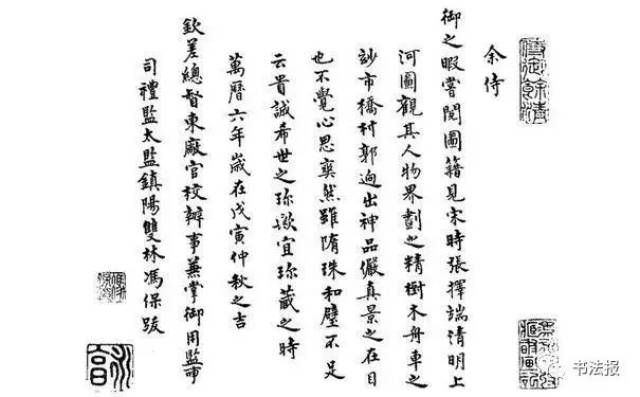 余侍
御之暇嘗閱圖籍見宋時張擇端清明上
河圖觀其人物界劃之精樹木舟車之
玅市橋村郭逈出神品儼真景之在目
也不覺心思爽然雖隋珠和璧不足
云貴誠希世之珍歟宜珍藏之時
萬曆六年歲在戊寅仲秋之吉
欽差總督東廠官校辦事兼掌御用監事
司禮監太監鎮陽雙林馮保跋
书法报